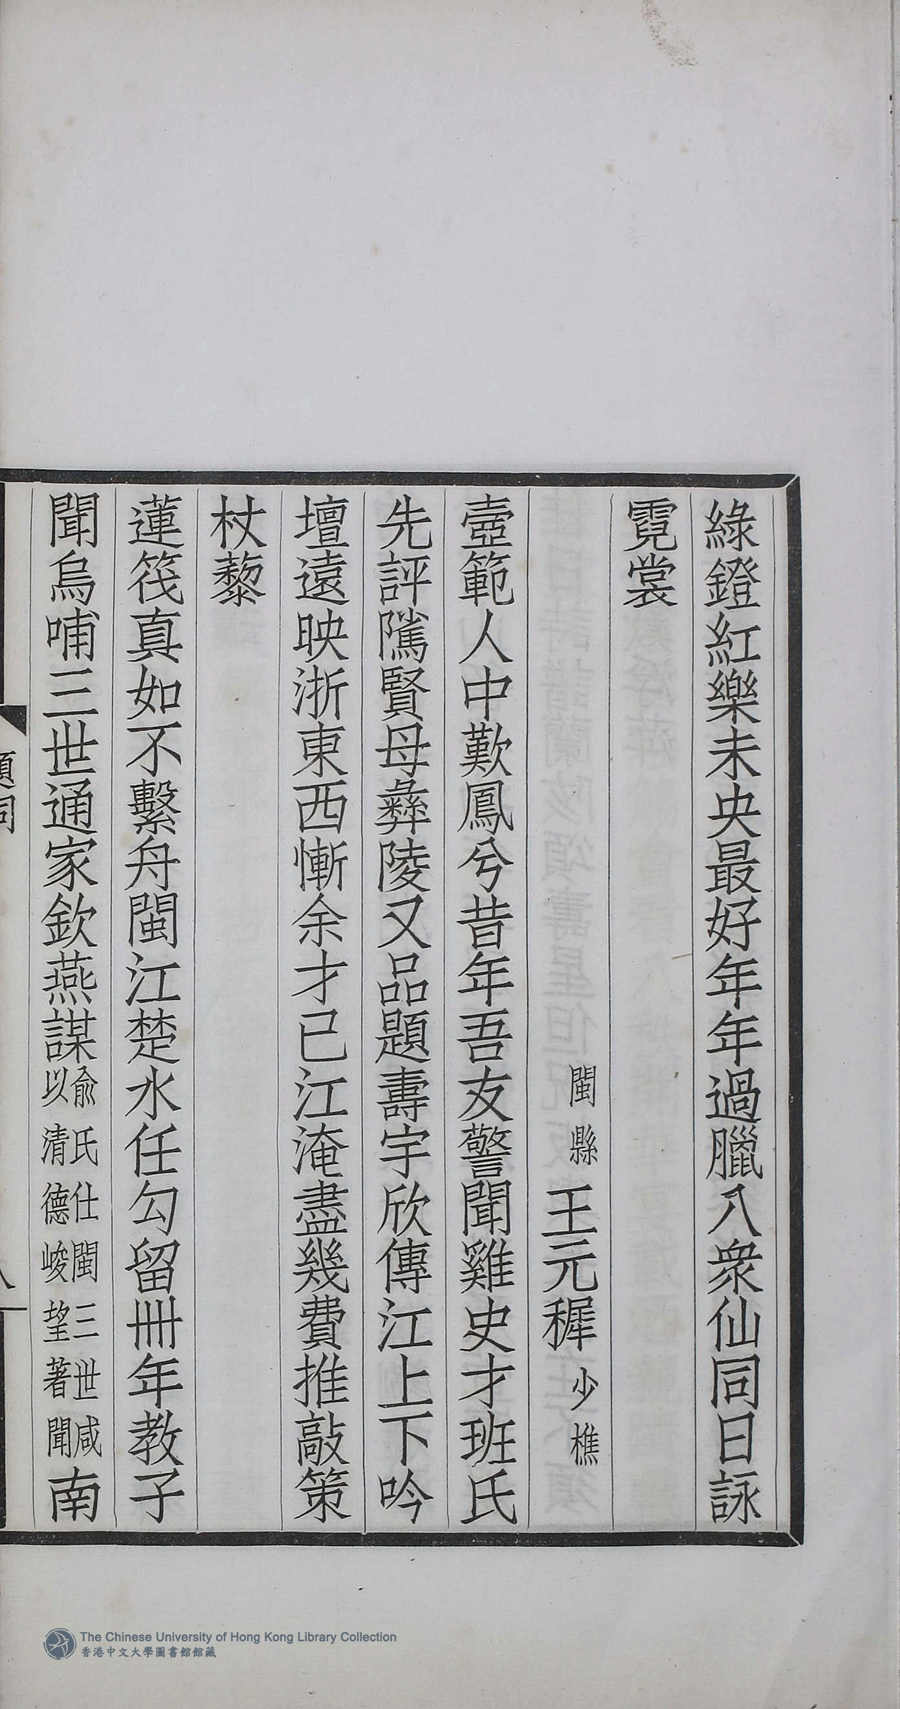 綠鐙紅樂未央最好年年過臘八衆仙同日詠
霓裳
閩縣王元穉少樵
壼範人中歎鳳兮昔年吾友警聞雞史才班氏
先評隲賢母彝陵又品題壽宇欣傳江上下吟
壇遠映浙東西慚余才已江淹盡幾費推敲策
杖藜
蓮筏真如不繫舟閩江楚水任勾留卌年教子
聞烏哺三世通家欽燕謀俞氏仕閩三世咸以清德峻望著聞南
題詞
八
The Chinese University of Hong Kong Library Collection
香港中文大學圖書館館藏